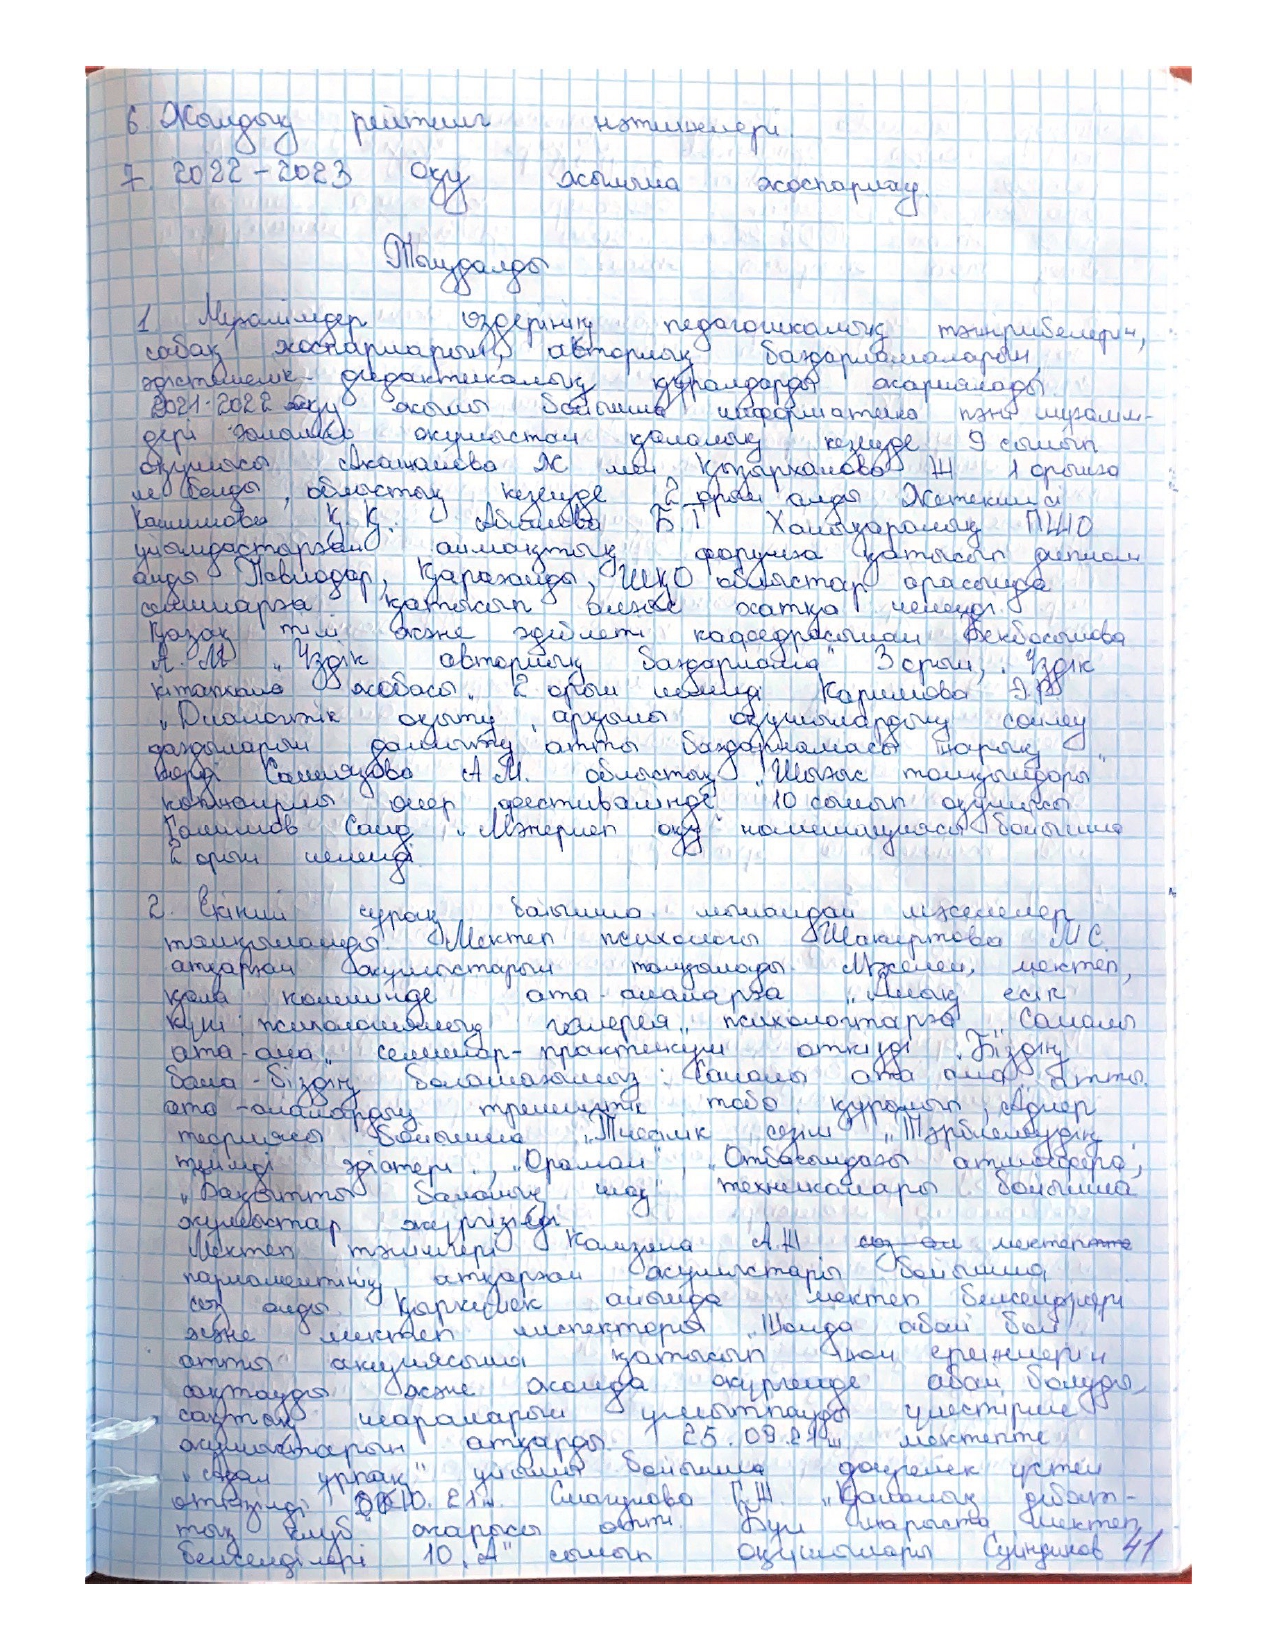 6. Жылдық рейтинг нәтижелері.
7. 2022-2023 оқу жылына жоспарлау.
Тыңдалды
1. Мұғалімдер өздерінің педагогикалық тәжірибелерін,
сабақ жоспарларын, авторлық бағдарламаларын,
әдістемелік-дидактикалық құралдарды жариялады.
2021-2022 оқу жылы бойынша информатика пәні мұғалім-
дері ғылыми жұмыстан қалалық кезеңде 9 сынып
оқушысы Ж мен Ш 1 орынға
ие болды, облыстық кезеңде 2 орын алды Жетекшісі
Қ.Қ. Б.Т Халықаралық ПШО
ұйымдастырған аймақтық форумға қатысып диплом
алды Павлодар, Қарағанды, ШҚО облыстар арасында
семинарға қатысып алғыс хатқа иеленді.
Қазақ тілі және әдебиеті кафедрасынан Бекбосынова
А.М „Үздік авторлық бағдарлама" 3 орын, „Үздік
кітапхана жобасы„ 2 орын иеленді Каримова Э.В
„Диалогтік оқыту арқылы оқушылардың сөйлеу
дағдыларын дамыту атты бағдарламасы жарық
көрді А.М. облыстық „Шығыс жұлдыздары"
көпжанрлы өнер фестивалінде 10 сынып оқушысы
Саид „Мәнерлеп оқу" номинациясы бойынша
2 орын иеленді.
2. Екінші сұрақ бойынша мынандай мәселелер
талқыланды. Мектеп психологы Шакиртова М.С.
атқарған жұмыстарын таңдалады. мектеп,
қала көлемінде ата-аналарға „Ашық есік
күні психологиялық галерея„ психологтарға „Саналы
ата-ана„ семинар-практикум өткізді „Біздің
бала-біздің болашағымыз: Саналы ата ана" атты
ата-аналардың тренингтік тобы құрылып, Адлер
теориясы бойынша сезім „Тәрбиелеудің
тиімді әдістері„, „Орамал", „Отбасындағы атмосфера",
„Бақытты балалық шақ" техникалары бойынша
жұмыстар жүргізді.
Мектеп тәлімгері А.Ш мектеп
парламентінің атқарған жұмыстары бойынша
сөз алды. Қыркүйек айында мектеп белсенділері
және мектеп инспекторы „Жолда абай бол"
атты акциясына қатысып жол ережелерін
сақтауды және жолда жүргенде абай болуды,
сақтық шараларын ұмытпауды үлестірме
жұмыстарын атқарды. 25.09.21ж мектепте
„Адал ұрпақ" ұйымы бойынша дөңгелек үстел
өткізілді 10.21ж. Смагулова Г.Ж. „Қалалық дебат-
тық клуб жарысы өтті. Бұл жарыста мектеп
белсенділері 10„А" сынып оқушылары Сүйндиков
41